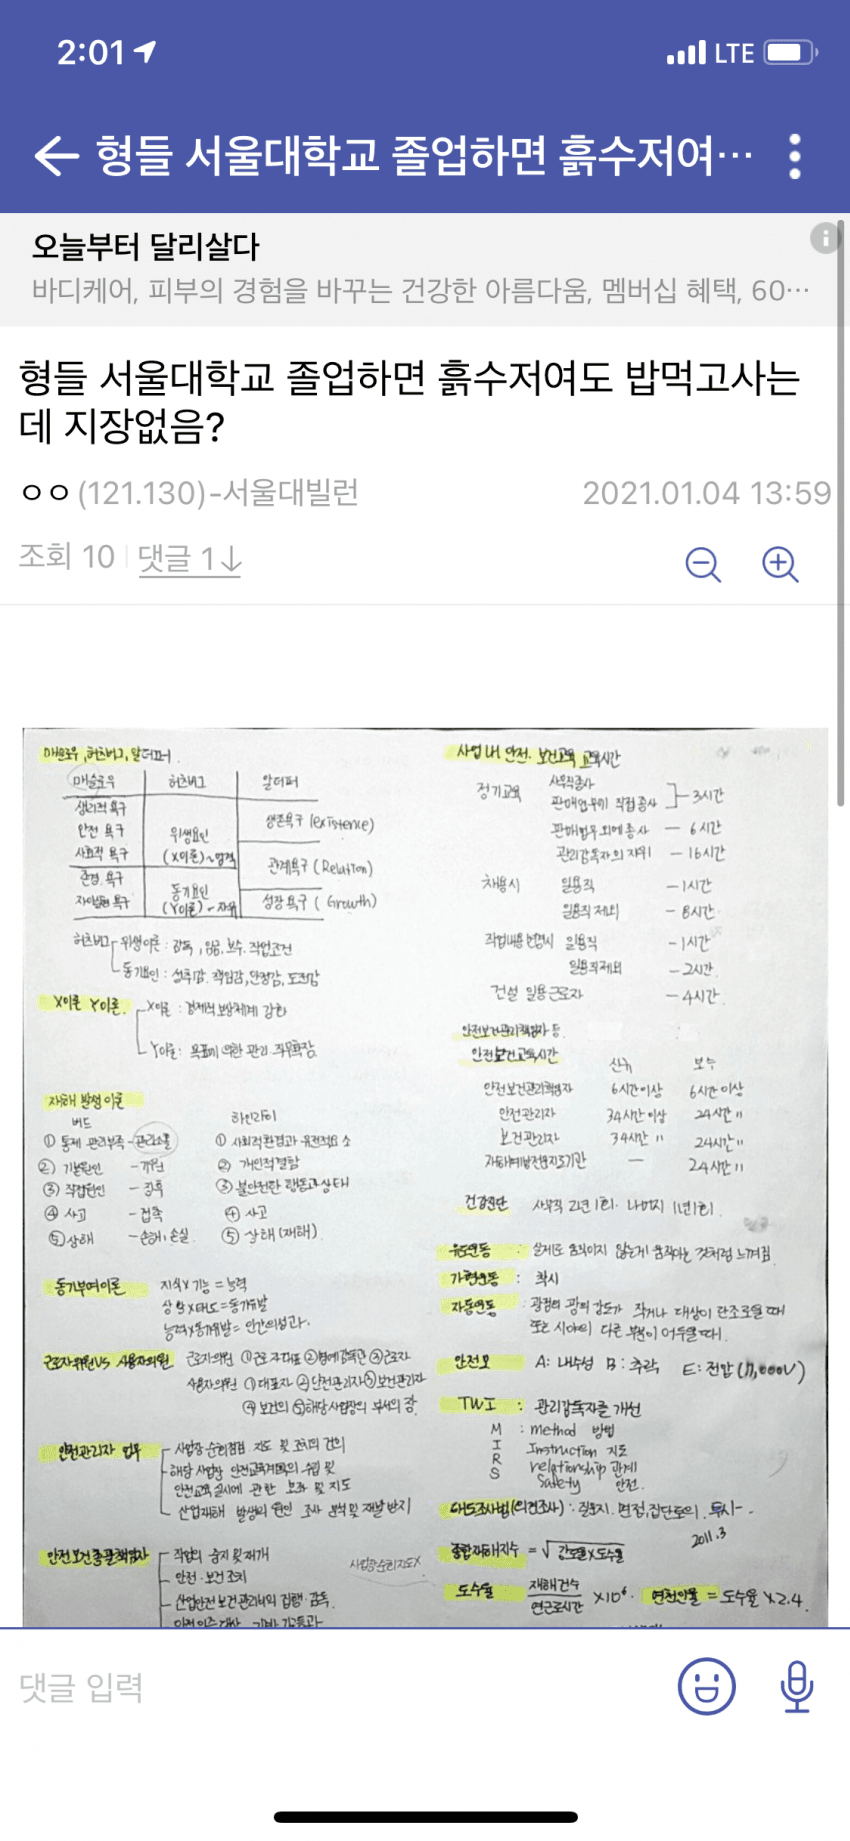 2:01
LTE
형들 서울대학교 졸업하면 흙수저여…
오늘부터 달리살다
바디케어, 피부의 경험을 바꾸는 건강한 아름다움, 멤버십 혜택, 60…
형들 서울대학교 졸업하면 흙수저여도 밥먹고사는
데 지장없음?
ㅇㅇ(121.130)-서울대빌런
2021.01.04 13:59
조회 10
댓글 1↓
매슬로우, 허츠버그, 알더퍼
매슬로우 허츠버그 알더퍼
생리적 욕구
안전 욕구
사회적 욕구
존경 욕구
자아실현 욕구
위생요인
(X이론)
동기요인
(Y이론)
생존욕구 (existence)
관계욕구 (Relation)
성장욕구 (Growth)
허츠버그 위생이론 : 감독, 임금, 보수, 작업조건
동기요인 : 성취감, 책임감, 안정감, 도전감
X이론 Y이론. X이론 : 경제적 보상체계 강화
Y이론 : 목표에 의한 관리, 직무확장
재해 발생 이론
버드 하인리히
① 통제 관리부족 - 관리소홀
② 기본원인 - 기원
③ 직접원인 - 징후
④ 사고 - 접촉
⑤ 상해 - 손해, 손실
① 사회적환경과 유전적요소
② 개인적결함
③ 불안전한 행동과 상태
④ 사고
⑤ 상해 (재해)
동기부여이론 지식 x 기능 = 능력
상황 x 태도 = 동기유발
능력 x 동기유발 = 인간의성과
근로자위원 VS 사용자위원 근로자위원 ①근로자대표 ②명예감독관 ③근로자
사용자위원 ①대표자 ②안전관리자 ③보건관리자
④보건의 ⑤해당사업장의 부서의 장
안전관리자 업무 사업장 순회점검 지도 및 조치의 건의
해당 사업장 안전교육계획의 수립 및
안전교육 실시에 관한 보좌 및 지도
산업재해 발생의 원인 조사 분석 및 재발 방지
안전보건총괄책임자 작업의 중지 및 재개
안전·보건조치
산업안전보건관리비의 집행·감독
사업장순회지도X
사업 내 안전·보건교육 교육시간
정기교육 사무직종사
판매업무에 직접종사 3시간
판매업무외에종사 - 6시간
관리감독자의 지위 - 16시간
채용시 일용직 - 1시간
일용직 제외 - 8시간
작업내용 변경시 일용직 - 1시간
일용직제외 - 2시간
건설 일용근로자 - 4시간
안전보건관리책임자 등
안전보건교육시간 신규 보수
안전보건관리책임자 6시간이상 6시간이상
안전관리자 34시간 이상 24시간 〃
보건관리자 34시간 〃 24시간 〃
재해예방전문지도기관 - 24시간 〃
건강진단 사무직 2년1회. 나머지 1년1회.
유도운동 : 실제로 움직이지 않는게 움직이는 것처럼 느껴짐
가현운동 : 착시
자동운동 : 광점의 광의 강도가 작거나 대상이 단조로울때
또는 시야의 다른 부분이 어두울때.
안전모 A: 내수성 B: 추락 E: 전압 (7,000V)
TWI : 관리감독자를 개선
M : method 방법
I Instruction 지도
R relationship 관계
S Safety 안전.
태도조사법(의견조사) : 질문지, 면접, 집단토의, 투사
2011.3
종합재해지수 = √강도율x도수율
도수율 재해건수
연근로시간 x10⁶. 연천인율 = 도수율 x 2.4.
댓글 입력